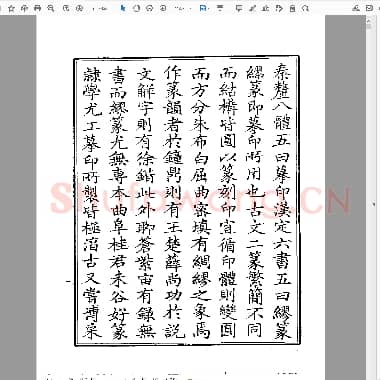 秦釐八體五曰摹印漢定六書五曰繆篆
繆篆即摹印所用也古文二篆繁簡不同
而結構皆圓以篆刻印官循印體則變圓
而方分朱布白屈曲密填有綢繆之象焉
作篆韻者於鐘鼎則有王楚薛尚功於說
文解字則有徐鍇此外聊蒼紫宙有錄無
書而繆篆尤無專本曲阜桂君未谷好篆
隸學尤工摹印所製皆極渞古又嘗博采
Shufawang.CN